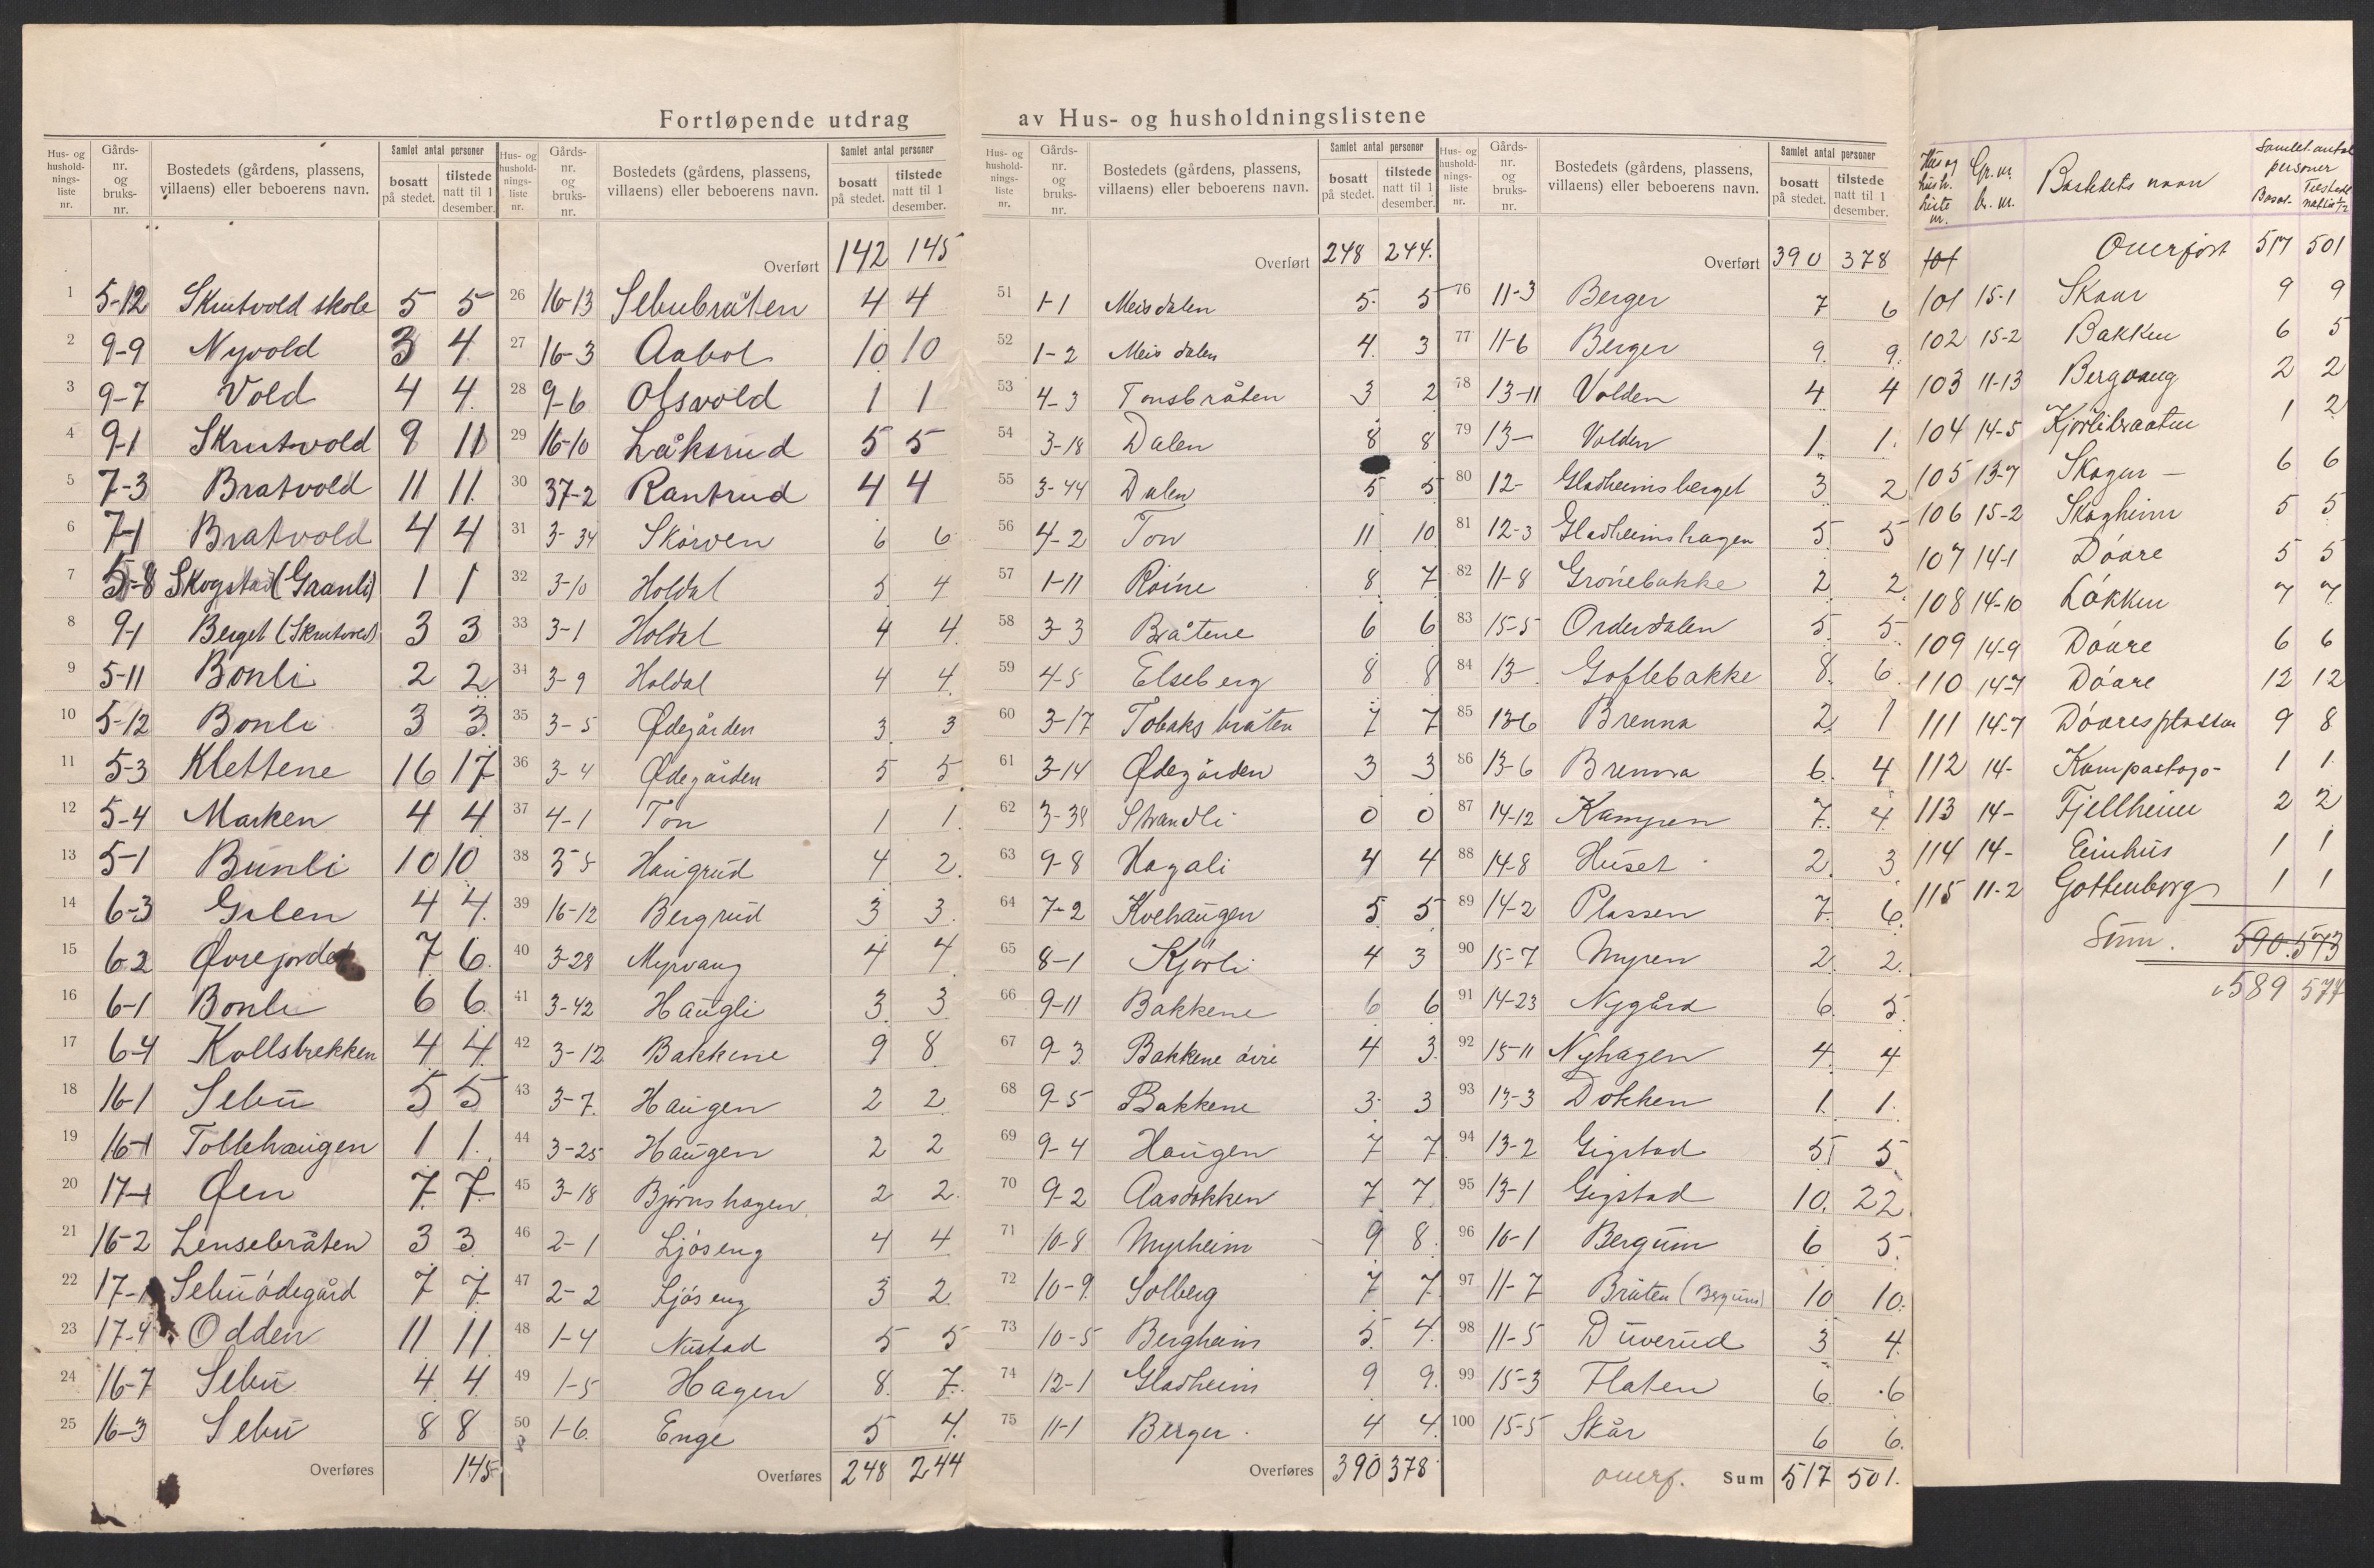 Fortløpende utdrag av Hus- og husholdningslistene
Hus- og husholdningsliste nr. Gårds-nr. og bruks-nr. Bostedets (gårdens, plassens, villaens) eller beboerens navn. Samlet antal personer bosatt på stedet. tilstede natt til 1 desember.
1 5-12 Skrutvold skole 5 5
2 9-9 Nyvold 3 4
3 9-7 Vold 4 4
4 9-1 Skrutvold 9 11
5 7-3 Bratvold 11 11
6 7-1 Bratvold 4 4
7 5-8 Skogstad (Granli) 1 1
8 9-1 Berget (Skrutvold) 3 3
9 5-11 Bonli 2 2
10 5-12 Bonli 3 3
11 5-3 Klettene 16 17
12 5-4 Marken 4 4
13 5-1 Bunli 10 10
14 6-3 Gilen 4 4
15 6-2 Øvrejordet 7 6
16 6-1 Bonli 6 6
17 6-4 Kollstrekken 4 4
18 16-1 Sebu 5 5
19 16-1 Tollehaugen 1 1
20 17-1 Øen 7 7
21 16-2 Lensebråten 3 3
22 17-1 Sebuødegård 7 7
23 17-4 Odden 11 11
24 16-7 Sebu 4 4
25 16-3 Sebu 8 8
Overføres 145
Hus- og husholdningsliste nr. Gårds-nr. og bruks-nr. Bostedets (gårdens, plassens, villaens) eller beboerens navn. Samlet antal personer bosatt på stedet. tilstede natt til 1 desember.
Overført 142 145
26 16-13 Sebubråten 4 4
27 16-3 Aabol 10 10
28 9-6 Olsvold 1 1
29 16-10 Låksrud 5 5
30 37-2 Rantrud 4 4
31 3-34 Skörven 6 6
32 3-10 Holdal 5 4
33 3-1 Holdal 4 4
34 3-9 Holdal 4 4
35 3-5 Ødegården 3 3
36 3-4 Ødegården 5 5
37 4-1 Ton 1 1
38 3-5 Haugrud 4 2
39 16-12 Bergrud 3 3
40 3-28 Myrvang 4 4
41 3-42 Haugli 3 3
42 3-12 Bakkene 9 8
43 3-7 Haugen 2 2
44 3-25 Haugen 2 2
45 3-18 Bjørnshagen 2 2
46 2-1 Ljøseng 4 4
47 2-2 Ljøseng 3 2
48 1-4 Nustad 5 5
49 1-5 Hagen 8 7
50 1-6 Enge 5 4
Overføres 248 244
Hus- og husholdningsliste nr. Gårds-nr. og bruks-nr. Bostedets (gårdens, plassens, villaens) eller beboerens navn. Samlet antal personer bosatt på stedet. tilstede natt til 1 desember.
Overført 248 244
51 1-1 Meisdalen 5 5
52 1-2 Meisdalen 4 3
53 4-3 Tonsbråten 3 2
54 3-18 Dalen 8 8
55 3-44 Dalen 5 5
56 4-2 Ton 11 10
57 1-11 Röine 8 7
58 3-3 Bråtene 6 6
59 4-5 Elseberg 8 8
60 3-17 Tobaksbråten 7 7
61 3-14 Ødegården 3 3
62 3-38 Strandli 0 0
63 9-8 Hagali 4 4
64 7-2 Kvehaugen 5 5
65 8-1 Kjörli 4 3
66 9-11 Bakkene 6 6
67 9-3 Bakkene övre 4 3
68 9-5 Bakkene 3 3
69 9-4 Haugen 7 7
70 9-2 Aasdokken 7 7
71 10-8 Myrheim 9 8
72 10-9 Solberg 7 7
73 10-5 Bergheim 5 4
74 12-1 Gladheim 9 9
75 11-1 Berger 4 4
Overføres 390 378
Hus- og husholdningsliste nr. Gårds-nr. og bruks-nr. Bostedets (gårdens, plassens, villaens) eller beboerens navn. Samlet antal personer bosatt på stedet. tilstede natt til 1 desember.
Overført 390 378
76 11-3 Berger 7 6
77 11-6 Berger 9 9
78 13-11 Volden 4 4
79 13- Volden 1 1
80 12- Gladheimsberget 3 2
81 12-3 Gladheimshagen 5 5
82 11-8 Grönebakke 2 2
83 15-5 Orderdalen 5 5
84 13- Goflebakke 8 6
85 13-6 Brenna 2 1
86 13-6 Brenna 6 4
87 14-12 Kampen 7 4
88 14-8 Huset 2 3
89 14-2 Plassen 7 6
90 15-7 Myren 2 2
91 14-23 Nygård 6 5
92 15-11 Nyhagen 4 4
93 13-3 Dokken 1 1
94 13-2 Gigstad 5 5
95 13-1 Gigstad 10 22
96 10-1 Bergum 6 5
97 11-7 Bråten (Bergum) 10 10
98 11-5 Duverud 3 4
99 15-3 Flaten 6 6
100 15-5 Skår 6 6
overf. Sum 517 501
Hus og hush. liste nr. Gr. nr. br. nr. Bostedets navn Samlet antal personer Bosat. Tilstede natt til 1/12
101 Overført 517 501
101 15-1 Skaar 9 9
102 15-2 Bakken 6 5
103 11-13 Bergvang 2 2
104 14-5 Kjörlibraaten 1 2
105 13-7 Skogen - 6 6
106 15-2 Skogheim 5 5
107 14-1 Döare 5 5
108 14-10 Lökken 7 7
109 14-9 Döare 6 6
110 14-7 Döare 12 12
111 14-7 Döaresplassen 9 8
112 14- 1 1
113 14- Fjellheim 2 2
114 14- Einhus 1 1
115 11-2 Gottenborg 1 1
Sum. 590 573
589 574